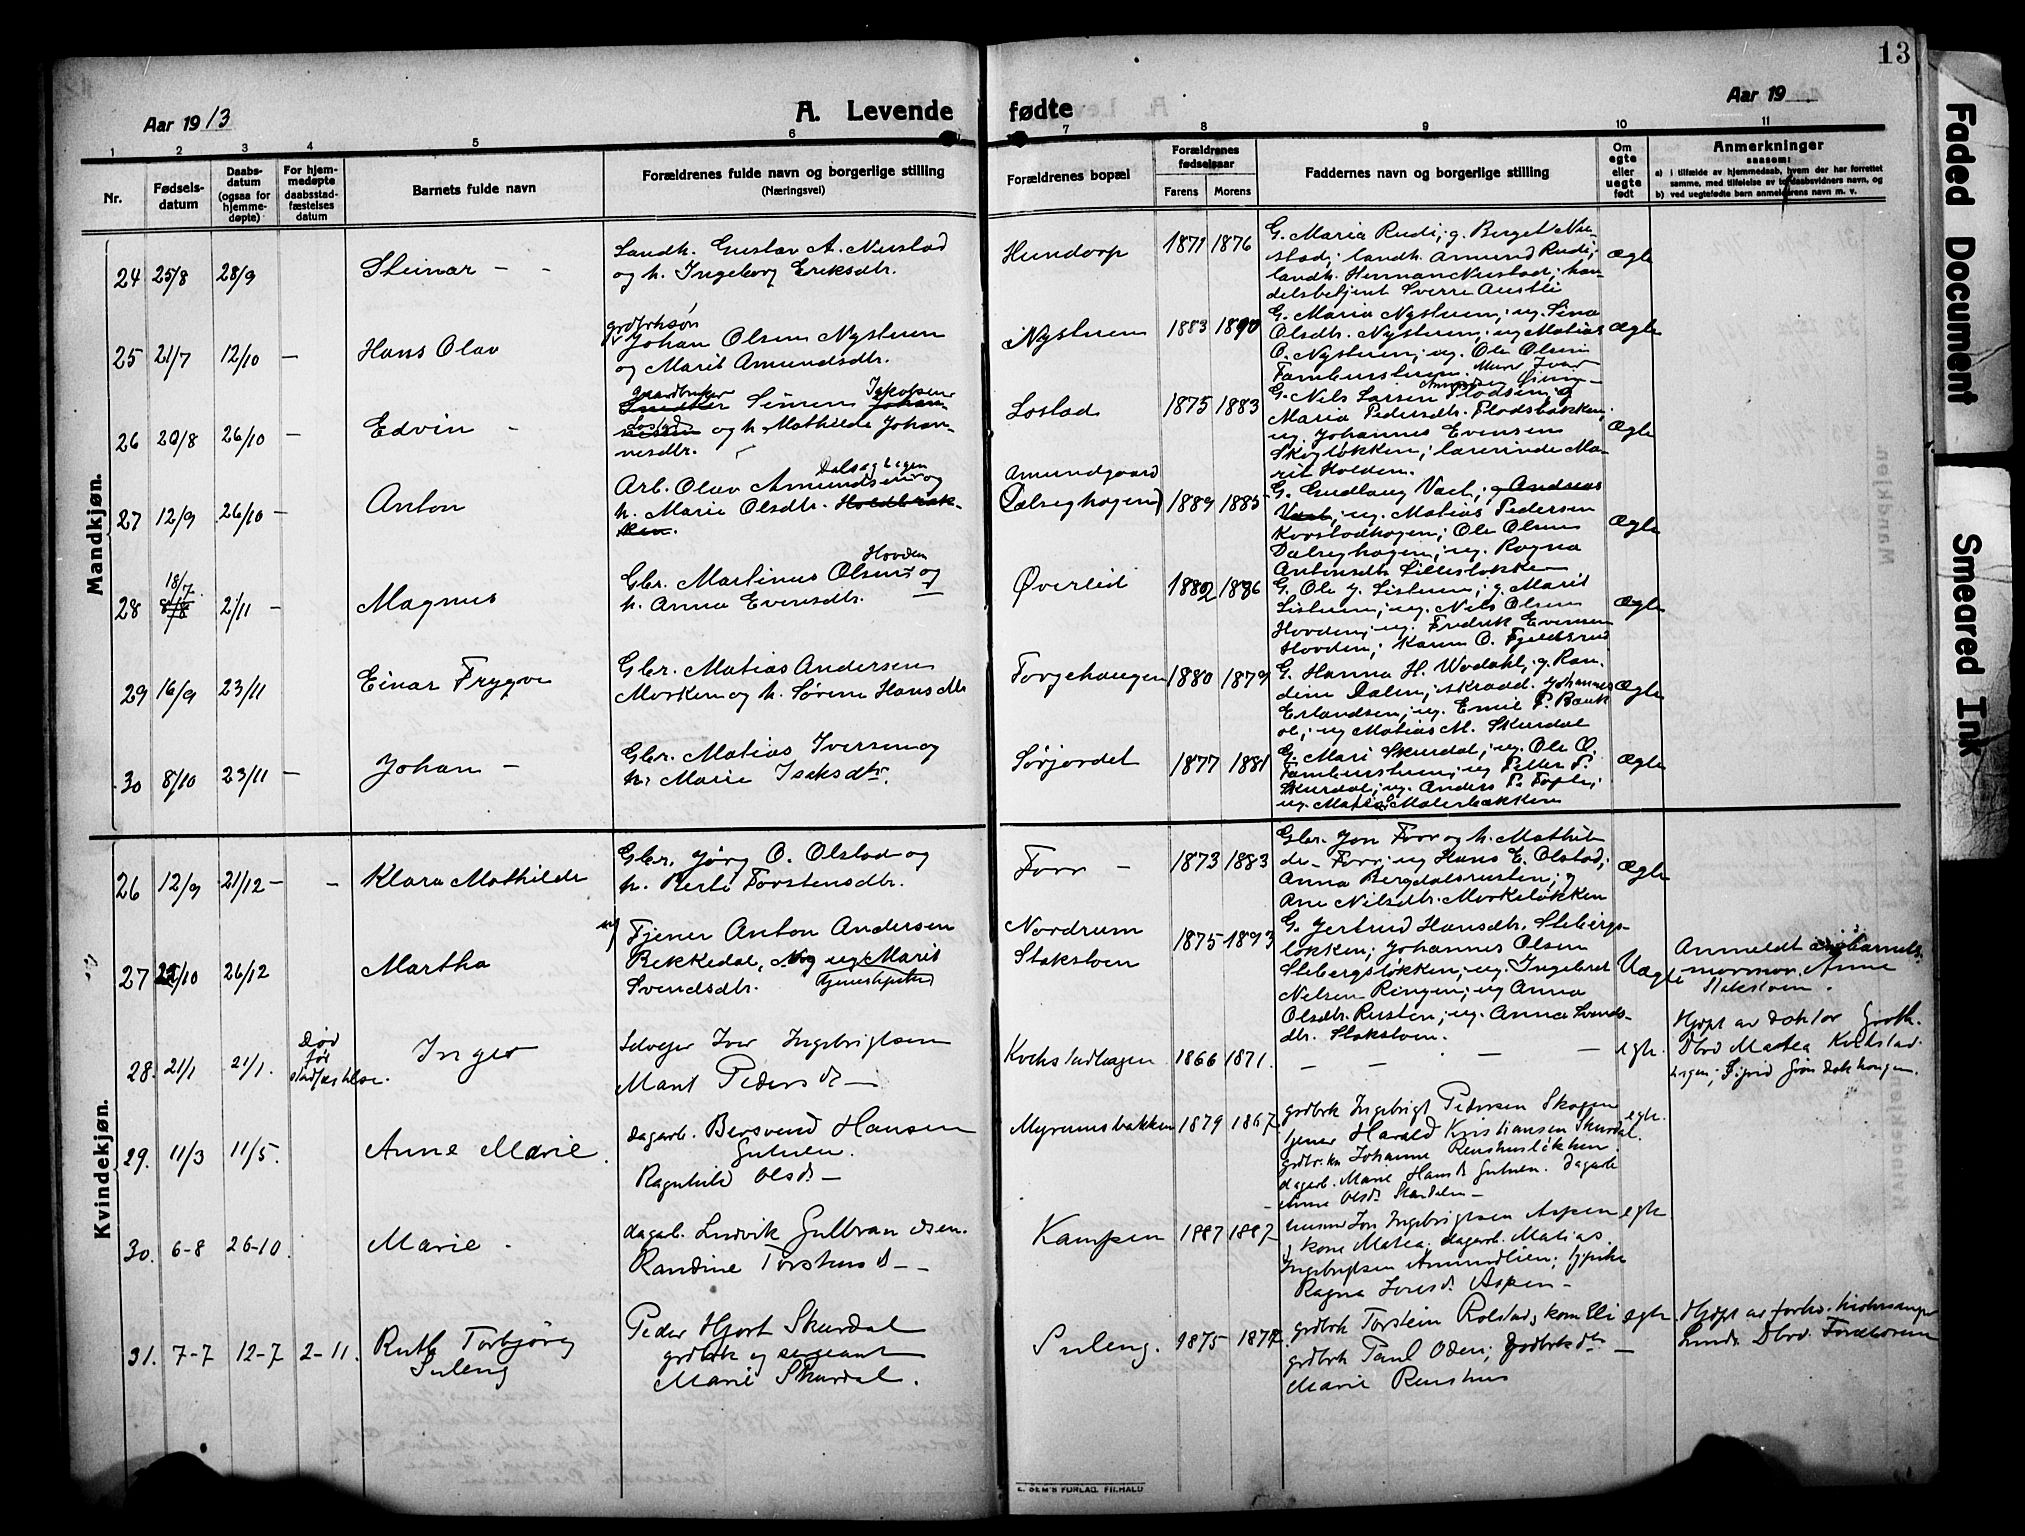 13
Aar 1913
A. Levende fødte
Aar 19
1 2 3 4 5 6 7 8 9 10 11
Nr.
Fødsels-
datum
Daabs-
datum
(ogsaa for
hjemme-
døpte)
For hjem-
medøpte
daabsstad-
fæstelses
datum
Barnets fulde navn
Forældrenes fulde navn og borgerlige stilling
(Næringsvei)
Forældrenes bopæl
Forældrenes
fødselsaar
Farens Morens
Faddernes navn og borgerlige stilling
Om
egte
eller
uegte
født
Anmerkninger
saasom:
a) i tilfælde av hjemmedaab, hvem der har forrettet
samme, med tilføielse av to daabsvidners navn, og
b) ved uegtefødte barn anmelderens navn m. v.
Mandkjøn.
24 25/8 28/9
Steinar - -
Landh. Gustav A. Neistad
og h. Ingeborg Eriksdtr.
Hundorp 1871 1876
G. Maria Rudi; g. Berget Nei-
stad; landh. Amund Rudi;
landh. Herman Neistad; han-
delsbetjent Sverre Austli
Ægte
25 21/7 12/10 -
Hans Olav
grdbrksøn
Johan Olsen Nystuen
og Marit Amundsdtr.
Nystuen 1883 1890
G. Maria Nystuen; ug. Sina
Olsdtr. Nystuen; ug Matias
O. Nystuen; ug. Ole Olsen
Ægte
26 20/8 26/10 -
Edvin -
Gaardbruker
Simen Jakobsen
Lostad og h. Mathilde Johan-
nesdtr.
Lostad 1875 1883
G. Nils Larsen Flodsin; g
Maria Pedersdtr. Flodsbakken;
ug. Johannes Evensen
Skogløkken; lærerinde Ma-
rit Holden.
Ægte
27 12/9 26/10 -
Anton
Dalseghagen
Arb. Olav Amundsen og
h. Marie Olsdtr. Holdbræk-
ken.
Amundgaard
(Dalseghagen) 1889 1885
G. Gudlaug Vaal; g Andreas
Vaal; ug. Matias Pedersen
Korstadhagen; Ole Olsen
Dalseghagen; ug. Ragna
Antonsdtr Lillesløkken
Ægte
28 18/7 8/8 2/11 -
Magnus
Hovden
Gbr. Martinus Olsen og
h. Anna Evensdtr.
Øverlid 1882 1886
G. Ole J. Listuen; g. Marit
Listuen; ug. Nils Olsen
Hovden; ug. Fredrik Evensen
Hovden; Karen O. Fjeldsrud
Ægte
29 16/9 23/11
Einar Trygve
Gbr. Matias Andersen
Morken og h. Sørine Hansdtr
Torgehaugen 1880 1879
G. Hanna H. Wodahl; g. Ran-
dine Dalen; skrædd. Johannes
Erlandsen; ug. Emil P. Bauk-
ol; ug Matias M. Skurdal
Ægte
30 8/10 23/11 -
Johan -
Gbr. Matias Iversen og
h. Marie Isaksdtr.
Sørjordet 1877 1881
G. Mari Skurdal; ug. Ole O.
Tambenstuen; ug Petter P.
Skurdal; ug. Anders P. Tofte;
ug. Matias Malerbakken
Ægte
Kvindekjøn.
26 12/9 21/12 - -
Klara Mathilde
Gbr. Jørg O. Olstad og
h. Berte Torstensdtr.
Forr - 1873 1883
Gbr. Jon Forr og h. Mathil-
de Forr; ug Hans E. Olstad;
Anna Bergdalsrusten; g
Ane Nilsdtr. Morkeløkken
Ægte
27 22/10 26/12
Martha
ug Tjener Anton Andersen
Bekkedal, og ug Marit
Svendsdtr. Tjenestepike
Nordrum
Stakstoen 1875 1893
G. Jertrud Hansdtr. Stebergs-
løkken; Johannes Olsen
Stebergsløkken; ug. Ingebret
Nelsen Ringen; ug Anna
Olsdtr. Rusten; ug. Anna Svends-
dtr. Stakstoen.
Uægte
Anmeldt av barnets
mormor Anne
Stakstoen.
28. 21/1 21/1.
Død
før
stadfæstelse.
Inger
Selveier Iver Ingebrigtsen
Marit Pedersd -
Kvekstadhagen 1866 1871. - - - - egte.
Hjdpt av doktor Groth.
Dbvd Matea Kvekstad-
hagen; Sigrid Grøndokhaugen.
29. 11/3 11/5.
Anne Marie
dagarb. Bersvend Hansen
Gutuen.
Ragnhild Olsd -
Myrumsbakken 1879 1867
grdbrk Ingebrigt Pedersen Skogen
tjener Harald Kristiansen Skurdal.
grdbr.kn Johanne Renshusløkken.
dagarb. Marie Hansd Gutuen. dagarb
Anne Olsd. Skardalen -
egte.
30. 6-8 26-10
Marie -
dagarb. Ludvik Gulbrandsen.
Randine Torstensd - -
Kampen 1887 1887
husm Jon Ingebrigtsen Aspen
g kone Matea. dagarb. Matias
Ingebrigtsen Amundlien; tjpike
Ragna Iversd. Aspen -
egte
31. 7-7 12-7 2-11.
Ruth Torbjørg
Suleng
Peder Hjort Skurdal
grdbrk og sergeant
Marie Skurdal.
Suleng. 1875 1877
grdbrk Torstein Rolstad, kone Eli
grdbrk Paul Oden; grdbrkdtr -
Marie Renshus
egte.
Hjdpt av forhv. kirkesanger
Lunde. Dbvd. Forældrene
E. SEM'S FORLAG, FR.HALD
Faded Document
Smeared Ink